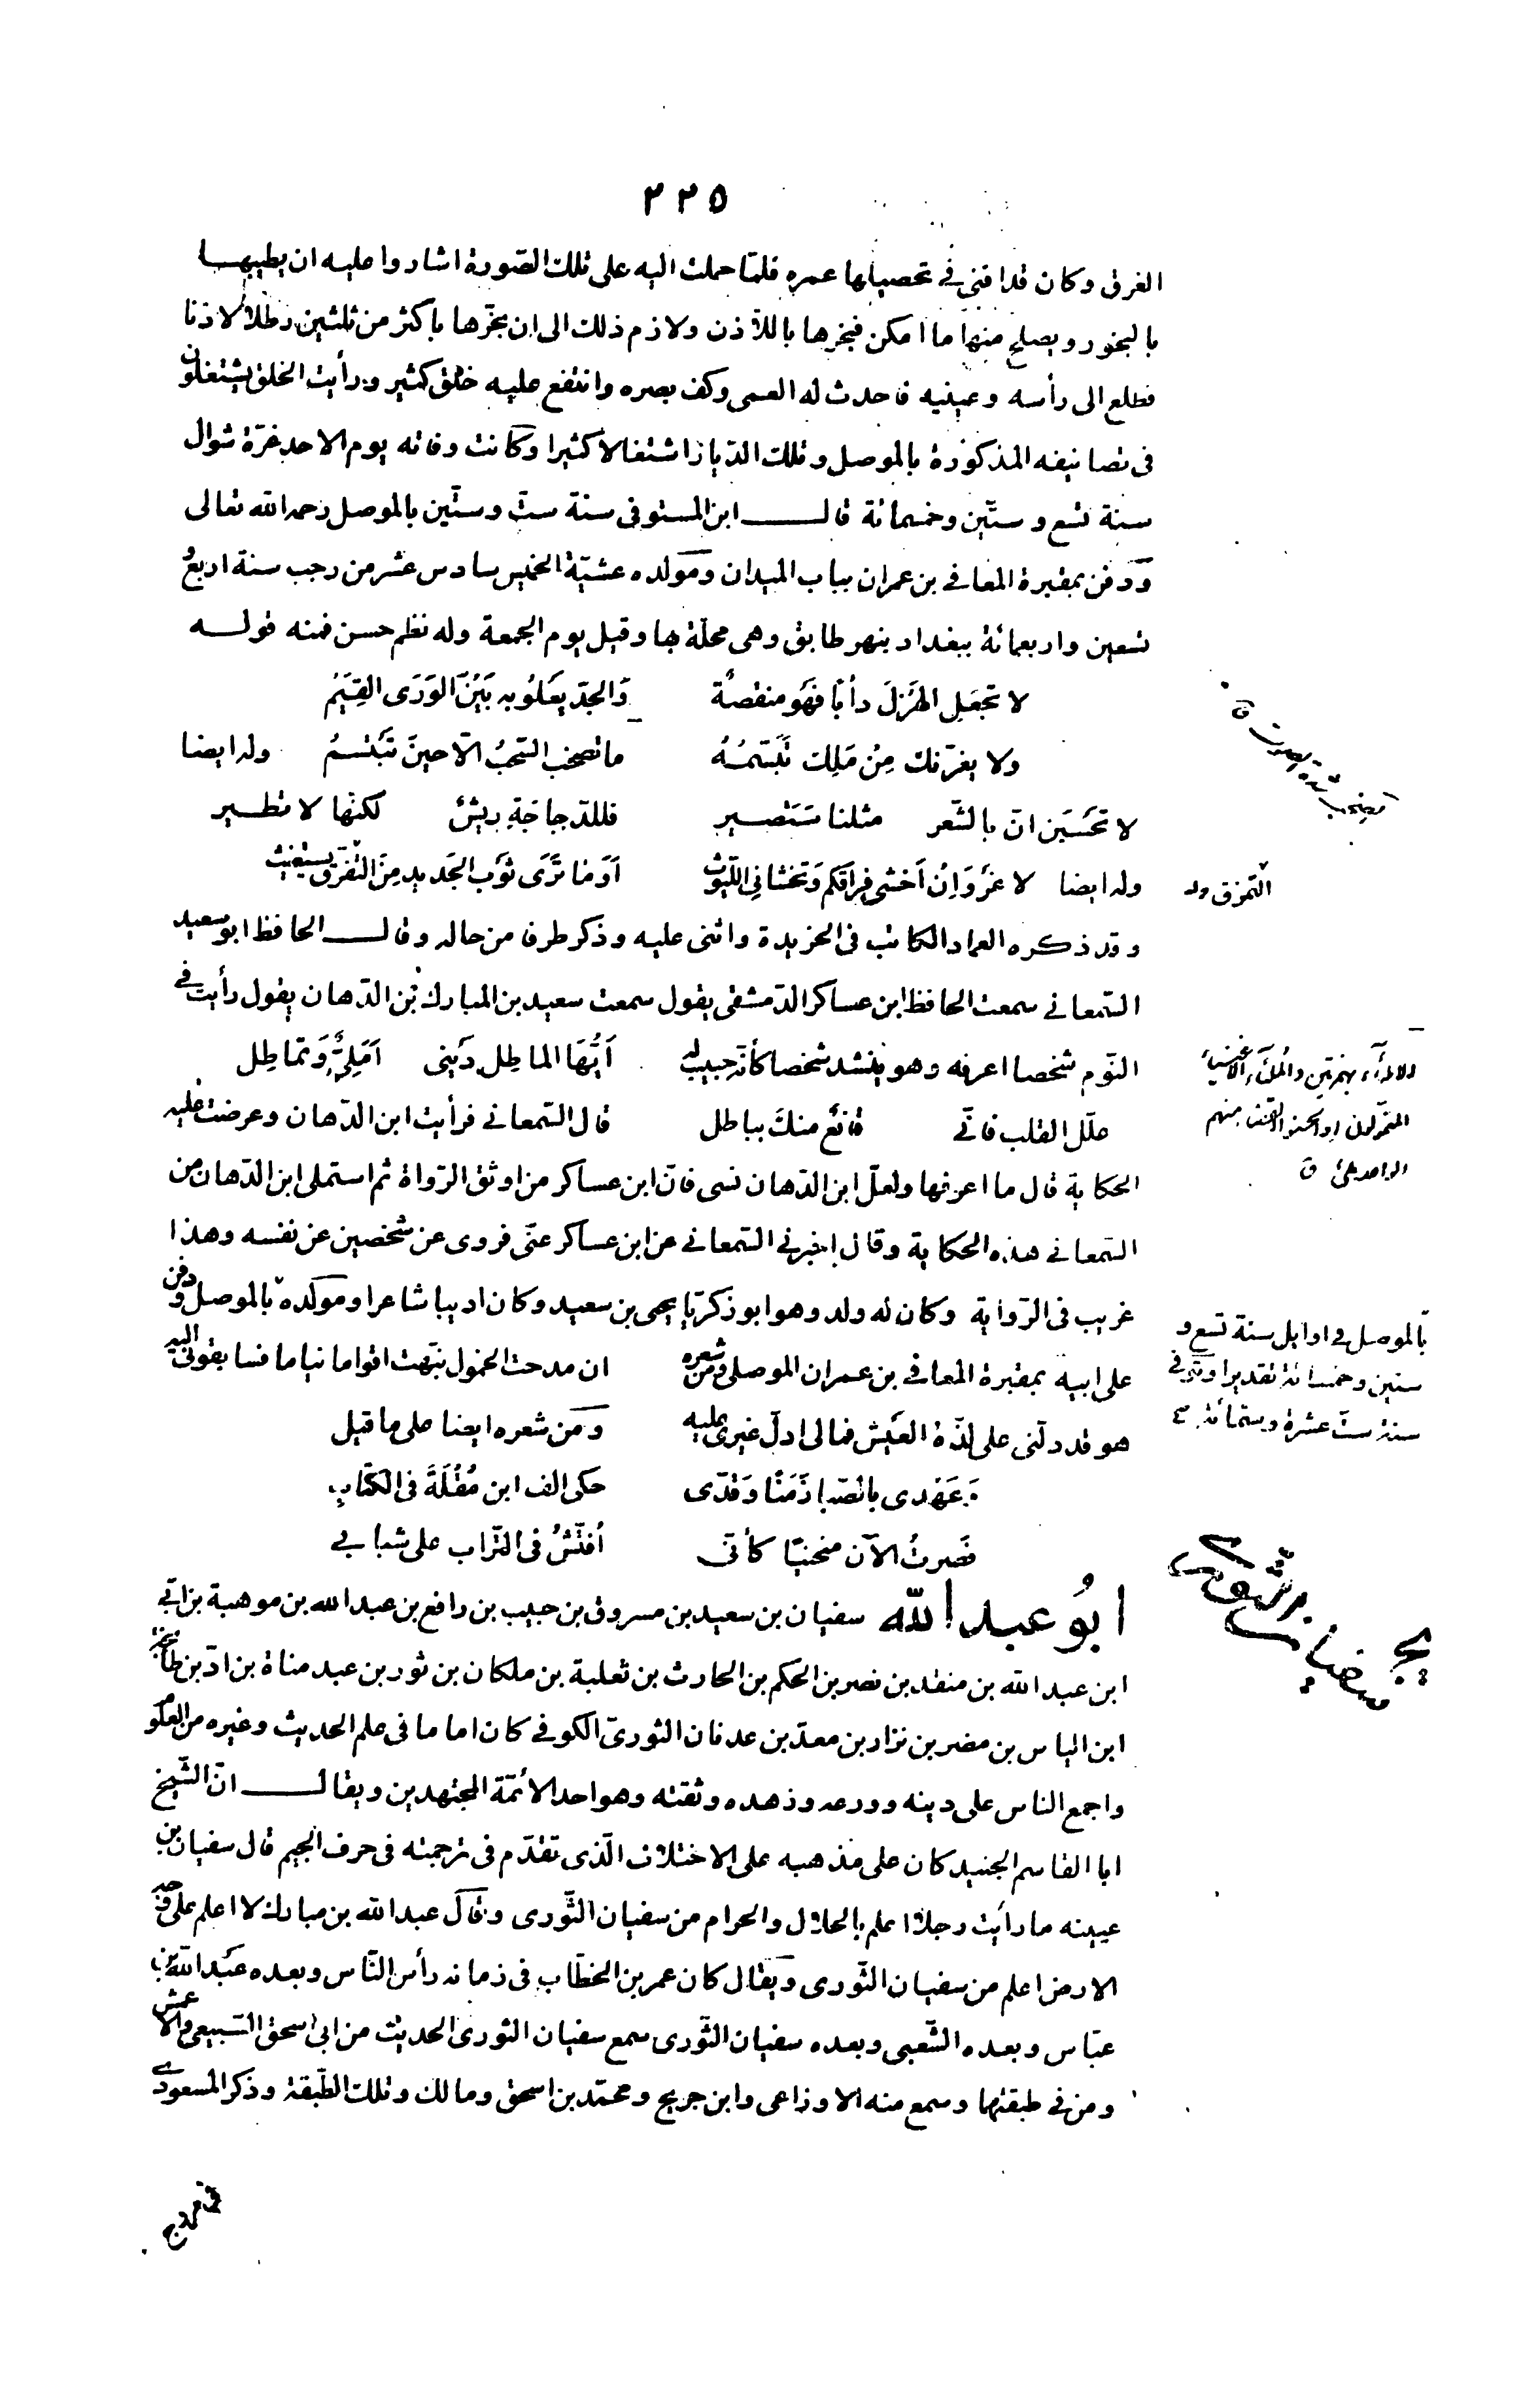 ٢٢٥
الغرق وكان قد افنى فى تحصيلها عمره فلمّا حملت اليه على تلك الصّورة اشاروا عليه ان يطيبهــا
بالبخور ويصلح منها ما امكن فبخرها باللّاذن ولازم ذلك الى ان بخّرها باكثر من ثلثين رطلا لاذنا
فطلع الى رأسه وعينيه فاحدث له العمى وكف بصره وانتفع عليه خلق كثير ورأيت الخلق يشتغلون
فى تصانيفه المذكورة بالموصل وتلك الدّيار اشتغالا كثيرا وكانت وفاته يوم الاحد غرّة شوال
سنة تسع وستّين وخمسمائة قالــــ ابن المستوفى سنة ستّ وستّين بالموصل رحمه الله تعالى
ودفن بمقبرة المعافى بن عمران بباب الميدان ومولده عشيّة الخميس سادس عشر من رجب سنة اربع و
تسعين واربعمائة ببغداد بنهر طابق وهى محلّة بها وقيل يوم الجمعة وله نظم حسن فمنه قولــه
لا تجعل الهزل دأبا فهو منقصة والجدّ يعلو به بين الورى القيم
ولا يغرّنك من ملك تبسّمه ما تصخب السّحب الّا حين تبتسم وله ايضا
لا تحسبن انّ بالشّعر مثلنا ستصير فللدّجاجة ريش لكنّها لا تطير
وله ايضا لا غرو ان اخشى فراقكم وتخشانى اللّيوث أو ما ترى ثوب الجديد من التّفرّق يستغيث
وقد ذكره العماد الكاتب فى الخريدة واثنى عليه وذكر طرفا من حاله وقالــــ الحافظ ابو سعيد
السّمعانى سمعت الحافظ ابن عساكر الدّمشقى يقول سمعت سعيد بن المبارك بن الدّهان يقول رأيت فى
النّوم شخصا اعرفه وهو ينشد شخصا كأنه حبيب له أيّها الماطل دينى أملىّ وتماطل
علّل القلب فانّى قانع منك بباطل قال السّمعانى فرأيت ابن الدّهان وعرضت عليه
الحكاية قال ما اعرفها ولعلّ ابن الدّهان نسى فانّ ابن عساكر من اوثق الرّواة ثم استملى ابن الدّهان من
السّمعانى هذه الحكاية وقال اخبرنى السّمعانى عن ابن عساكر عنّى فروى عن شخصين عن نفسه وهذا
غريب فى الرّواية وكان له ولد وهو ابو زكريّا يحيى بن سعيد وكان اديبا شاعرا ومولده بالموصل ودفن
على ابيه بمقبرة المعافى بن عمران الموصلى ومن شعره ان مدحت الخمول نبّهت اقواما نياما فسابقونى اليه
هو قد دلّنى على لذّة العيش فمالى ادلّ غيرى عليه ومن شعره ايضا على ما قيل
وعهدى بالصّبا زمنا وقدّى حكى الف ابن مقلة فى الكتاب
فصرت الآن منحنيا كأنّى أفتّش فى التّراب على شبابى
ابو عبد الله سفيان بن سعيد بن مسروق بن حبيب بن رافع بن عبد الله بن موهبة بن ابّى
ابن عبد الله بن منقذ بن نصر بن الحكم بن الحارث بن ثعلبة بن ملكان بن ثور بن عبد مناة بن ادّ بن طابخة
ابن الياس بن مضر بن نزار بن معدّ بن عدنان الثورىّ الكوفى كان اماما فى علم الحديث وغيره من العلوم
واجمع الناس على دينه وورعه وزهده وثقته وهو احد الائمّة المجتهدين ويقالــــ انّ الشّيخ
ابا القاسم الجنيد كان على مذهبه على الاختلاف الّذى تقدّم فى ترجمته فى حرف الجيم قال سفيان بن
عيينه ما رأيت رجلا اعلم بالحلال والحرام من سفيان الثّورى وقال عبد الله بن مبارك لا اعلم على وجه
الارض اعلم من سفيان الثّورى ويقال كان عمر بن الخطّاب فى زمانه رأس النّاس وبعده عبد الله بن
عبّاس وبعده الشّعبى وبعده سفيان الثّورى سمع سفيان الثورى الحديث من ابى اسحق السّبيعى والاعمش
ومن فى طبقتهما وسمع منه الاوزاعى وابن جريج ومحمّد بن اسحق ومالك وتلك الطّبقة وذكر المسعودى
التّمزق ولد
بالموصل فى اوايل سنة تسع و
ستين وخمسمائة تقديرا وتوفى
سنة ستّ عشرة وستمائة
سفيان الثورى